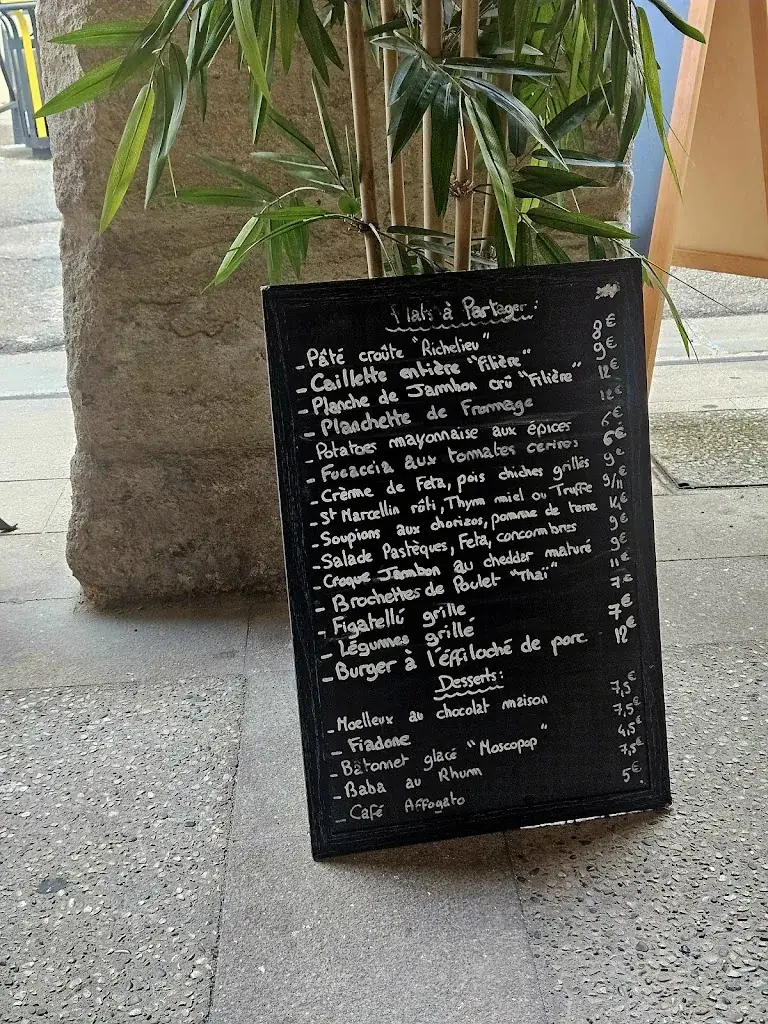 Plats à Partager :
- Pâté croûte "Richelieu" 8€
- Caillette entière "Filière" 9€
- Planche de Jambon crû "Filière" 12€
- Planchette de Fromage 12€
- Potatoes mayonnaise aux épices 6€
- Focaccia aux tomates cerises 6€
- Crème de Feta, pois chiches grillés 9€
- St Marcellin rôti, Thym miel ou Truffe 9/11€
- Soupions aux chorizos, pomme de terre 14€
- Salade Pastèques, Feta, concombres 9€
- Croque Jambon au cheddar maturé 9€
- Brochettes de Poulet "Thaï" 11€
- Figatellu grille 7€
- Légumes grillé 7€
- Burger à l'éffiloché de porc 12€
Desserts :
- Moelleux au chocolat maison 7,5€
- Fiadone 7,5€
- Bâtonnet glacé "Moscopop" 4,5€
- Baba au Rhum 7,5€
- Café Affogato 5€